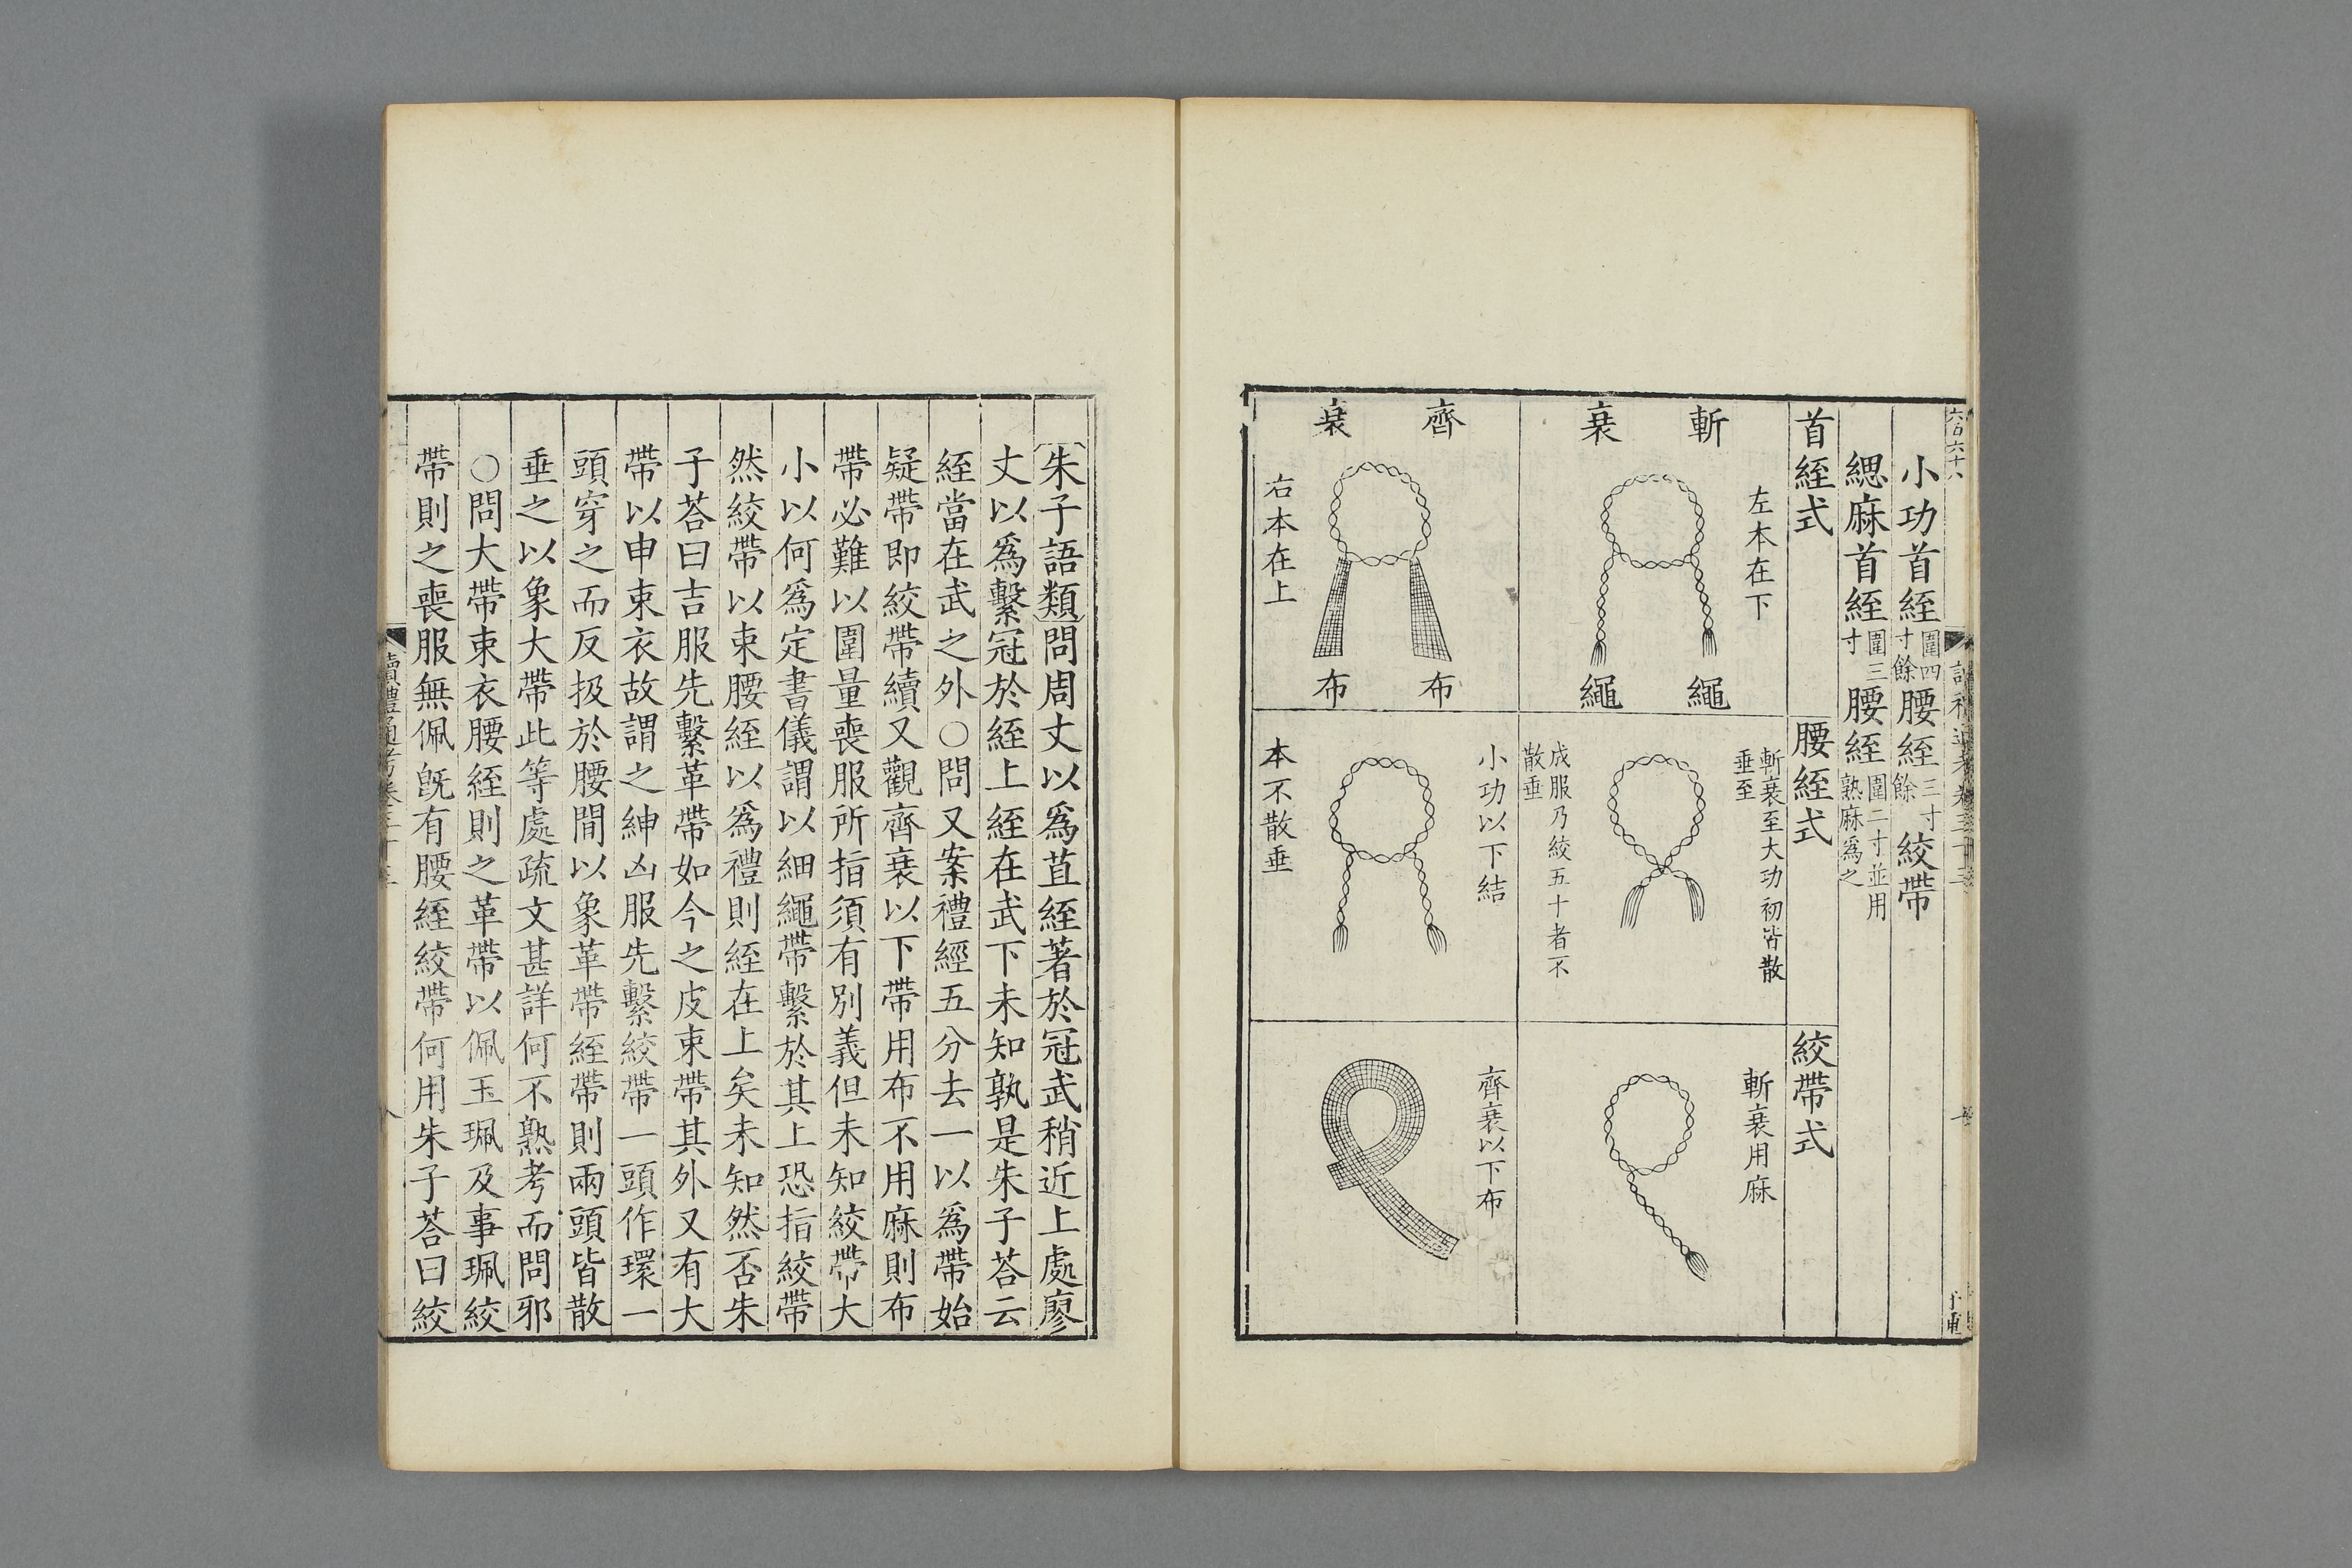 六百六十八
小功首絰圍四寸餘腰絰三寸餘絞帶
緦麻首絰圍三寸腰絰圍二寸並用熟麻爲之
首絰式
腰絰式
絞帶式
斬衰
左本在下
繩繩
齊衰
右本在上
布布
斬衰至大功初皆散
垂至
成服乃絞五十者不
散垂
小功以下結
本不散垂
斬衰用麻
齊衰以下布
朱子語類問周丈以爲苴絰著於冠武稍近上處廖
丈以爲繫冠於絰上絰在武下未知孰是朱子荅云
絰當在武之外○問又案禮經五分去一以爲帶始
疑帶即絞帶續又觀齊衰以下帶用布不用麻則布
帶必難以圍量喪服所指須有別義但未知絞帶大
小以何爲定書儀謂以細繩帶繫於其上恐指絞帶
然絞帶以束腰絰以爲禮則絰在上矣未知然否朱
子荅曰吉服先繫革帶如今之皮束帶其外又有大
帶以申束衣故謂之紳凶服先繫絞帶一頭作環一
頭穿之而反扱於腰間以象革帶絰帶則兩頭皆散
垂之以象大帶此等處疏文甚詳何不熟考而問邪
○問大帶束衣腰絰則之革帶以佩玉珮及事珮絞
帶則之喪服無佩旣有腰絰絞帶何用朱子荅曰絞
讀禮通考卷三十三